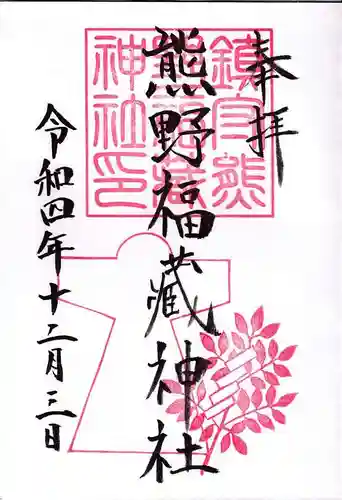 奉拝
鎮守熊
野福蔵
神社印
熊野福藏神社
令和四年十二月三日